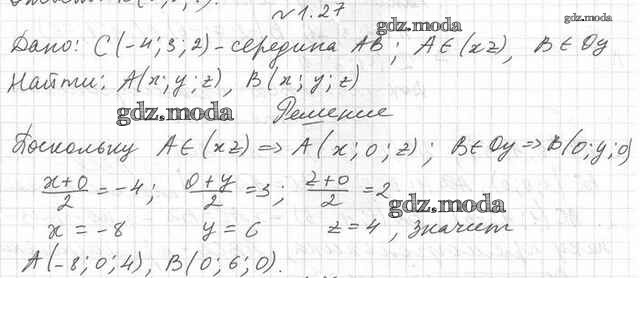 № 1.27
gdz.moda gdz.moda
Дано: C(-4; 3; 2) - середина AB; A∈(xz), B∈Oy
Найти: A(x; y; z), B(x; y; z)
gdz.moda
Решение
Поскольку A∈(xz) => A(x; 0; z); B∈Oy => B(0; y; 0)
(x+0)/2 = -4; (0+y)/2 = 3; (z+0)/2 = 2
gdz.moda
x = -8 y = 6 z = 4, значит
A(-8; 0; 4), B(0; 6; 0).